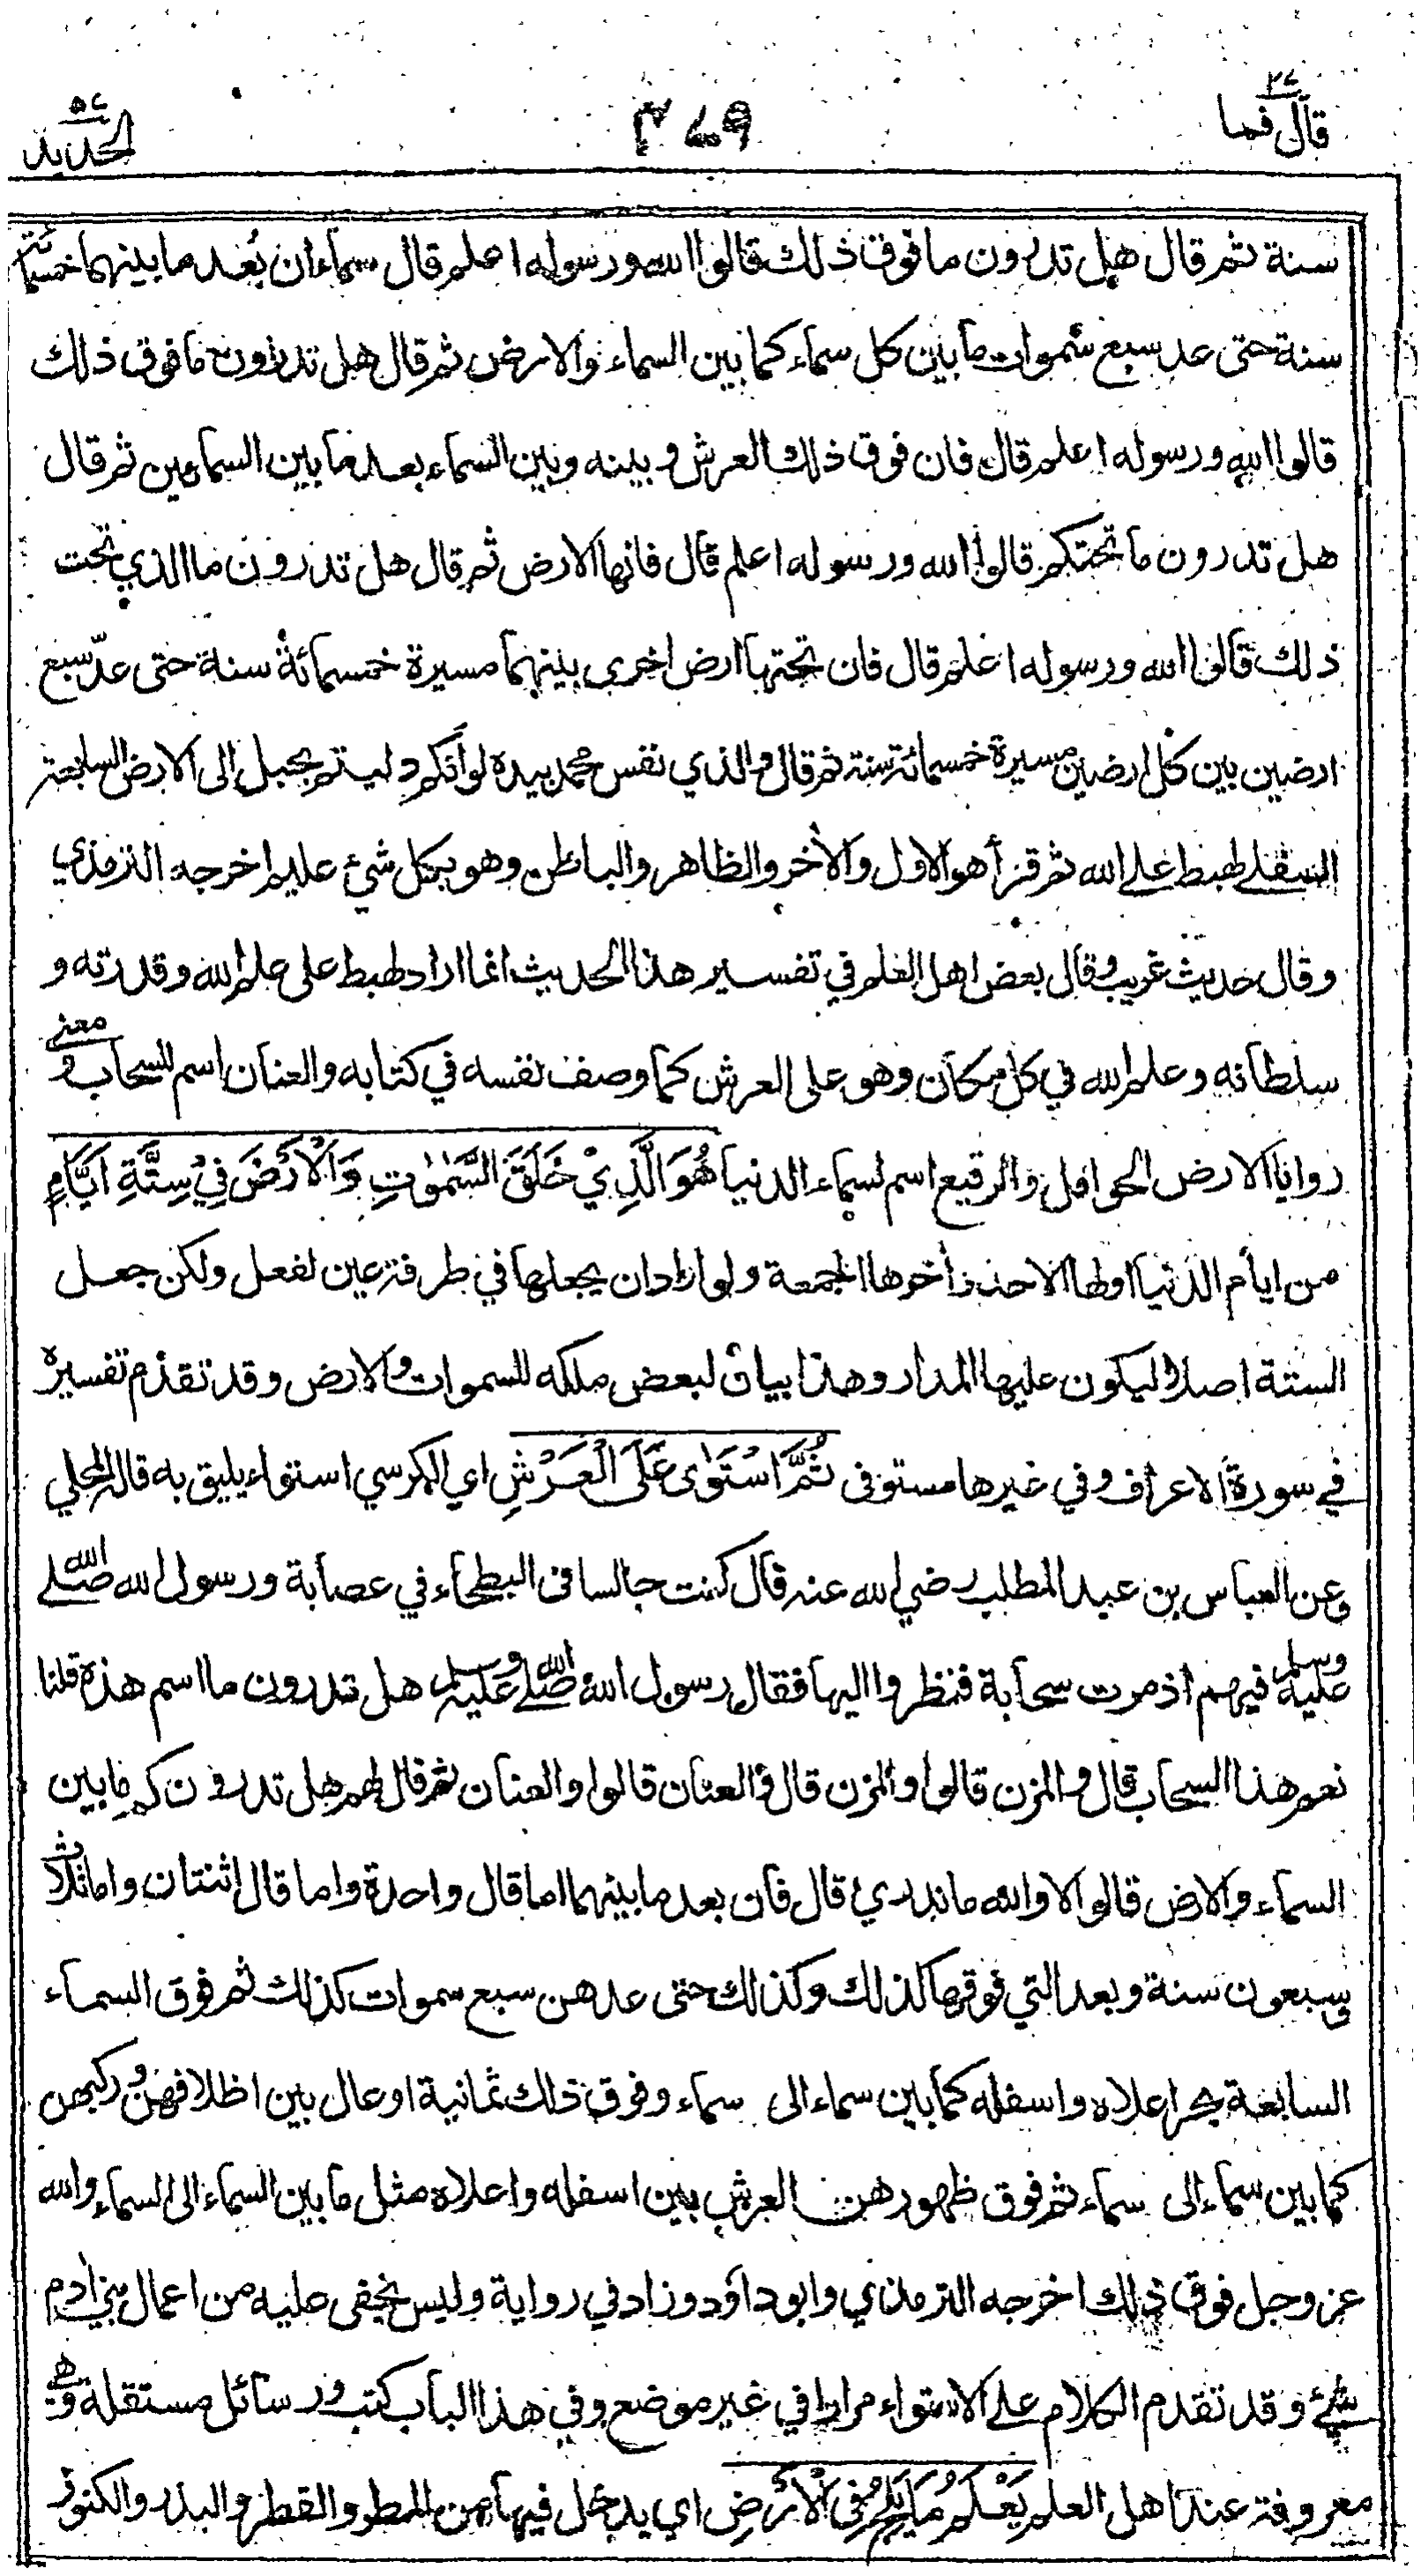 قال فما ٢٧
٢٧٩
الحديد ٥٧
سنة ثم قال هل تدرون ما فوق ذلك قالوا الله ورسوله اعلم قال سماءان بُعد ما بينهما خمسمائة
سنة حتى عد سبع سموات ما بين كل سماء كما بين السماء والارض ثم قال هل تدرون ما فوق ذلك
قالوا الله ورسوله اعلم قال فان فوق ذلك العرش وبينه وبين السماء بعد ما بين السماءين ثم قال
هل تدرون ما تحتكم قالوا الله ورسوله اعلم قال فانها الارض ثم قال هل تدرون ما الذي تحت
ذلك قالوا الله ورسوله اعلم قال فان تحتها ارض اخرى بينهما مسيرة خمسمائة سنة حتى عدّ سبع
ارضين بين كل ارضين مسيرة خمسمائة سنة ثم قال والذي نفس محمد بيده لو انكم دليتم بحبل الى الارض السابعة
السفلے لهبط علے الله ثم قرأ هو الاول والآخر والظاهر والباطن وهو بكل شئ عليم اخرجه الترمذي
وقال حديث غريب وقال بعض اهل العلم في تفسير هذا الحديث انما اراد لهبط على علم الله وقدرته و
سلطانه وعلم الله في كل مكان وهو على العرش كما وصف نفسه في كتابه والعنان اسم للسحاب ومعنے
روايا الارض الحوامل والرقيع اسم لسماء الدنيا هُوَ الَّذِيْ خَلَقَ السَّمٰوٰتِ وَالْاَرْضَ فِيْ سِتَّةِ اَيَّامٍ
من ايام الدنيا اولها الاحد وآخرها الجمعة ولو اراد ان يجعلها في طرفة عين لفعل ولكن جعل
الستة اصلا ليكون عليها المدار وهذا بيان لبعض ملكه للسموات والارض وقد تقدم تفسيره
في سورة الاعراف وفي غيرها مستوفى ثُمَّ اسْتَوٰى عَلَى الْعَرْشِ اي الكرسي استواء يليق به قاله المحلي
وعن العباس بن عبد المطلب رضي الله عنه قال كنت جالسا في البطحاء في عصابة ورسول الله صلے الله
عليه وسلم فيهم اذ مرت سحابة فنظروا اليها فقال رسول الله صلے الله عليه وسلم هل تدرون ما اسم هذه قلنا
نعم هذا السحاب قال والمزن قالوا والمزن قال والعنان قالوا والعنان ثم قال لهم هل تدرون كم ما بين
السماء والارض قالوا لا والله ما ندري قال فان بعد ما بينهما اما قال واحدة واما قال اثنتان واما ثلاث
وسبعون سنة وبعد التي فوقها كذلك وكذلك حتى عدهن سبع سموات كذلك ثم فوق السماء
السابعة بحر اعلاه واسفله كما بين سماء الى سماء وفوق ذلك ثمانية اوعال بين اظلافهن وركبهن
كما بين سماء الى سماء ثم فوق ظهورهن العرش بين اسفله واعلاه مثل ما بين السماء الى السماء والله
عز وجل فوق ذلك اخرجه الترمذي وابو داؤد وزاد في رواية وليس يخفى عليه من اعمال بني ادم
شئ وقد تقدم الكلام علے الاستواء مرارا في غير موضع وفي هذا الباب كتب ورسائل مستقلة وهي
معروفة عند اهل العلم يَعْلَمُ مَا يَلِجُ فِى الْاَرْضِ اي يدخل فيها من المطر والقطر والبذر والكنوز